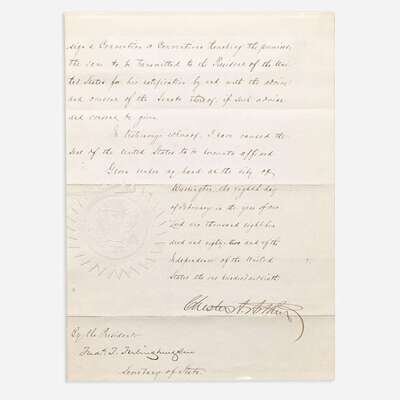 sign a Convention or Conventions touching the premises,
the same to be transmitted to the President of the Uni-
ted States for his ratification by and with the advice
and consent of the Senate thereof, if such advice
and consent be given.
In testimony whereof, I have caused the
Seal of the United States to be hereunto affixed
Given under my hand at the city of
Washington, the eighth day
of February in the year of our
Lord one thousand eight hun-
dred and eighty-two and of the
Independence of the United
States the one hundred and sixth.
Chester A. Arthur
By the President:
Fredk. T. Frelinghuysen
Secretary of State.